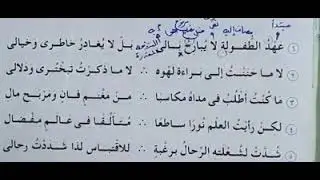 مبتدأ
مضاف إليه
١ عهد الطفولة لا يبارح بالى بل لا يغادر خاطرى وخيالى
٢ لا ما حننت إلى براءة لهوه ∴ لا ما ذكرت تبخترى ودلالى
٣ ما كنت أطلب فى مداه مكاسبا ∴ من مغنم فان ومربح مال
٤ لكن رأيت العلم نورا ساطعا ∴ متألقا فى عالم مفضال
٥ شدت لشعلته الرحال برغبة ∴ للاقتباس لذا شددت رحالى